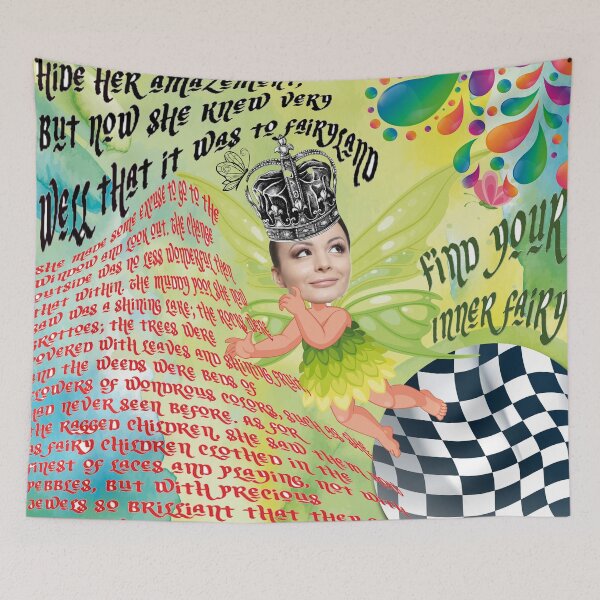 HIDE HER AMAZEMENT,
BUT NOW SHE KNEW VERY
WELL THAT IT WAS TO FAIRYLAND
SHE MADE SOME EXCUSE TO GO TO THE
WINDOW AND LOOK OUT. THE CHANGE
OUTSIDE WAS NO LESS WONDERFUL THAN
THAT WITHIN. THE MUDDY POOL SHE NOW
SAW WAS A SHINING LAKE; THE ROCKS WERE
GROTTOES; THE TREES WERE
COVERED WITH LEAVES AND SHINING FRUIT,
AND THE WEEDS WERE BEDS OF
FLOWERS OF WONDROUS COLORS, SUCH AS SHE
HAD NEVER SEEN BEFORE. AS FOR
THE RAGGED CHILDREN, SHE SAW THEM NOW
AS FAIRY CHILDREN CLOTHED IN THE
FINEST OF LACES AND PLAYING, NOT WITH
PEBBLES, BUT WITH PRECIOUS
JEWELS SO BRILLIANT THAT
FIND YOUR
INNER FAIRY